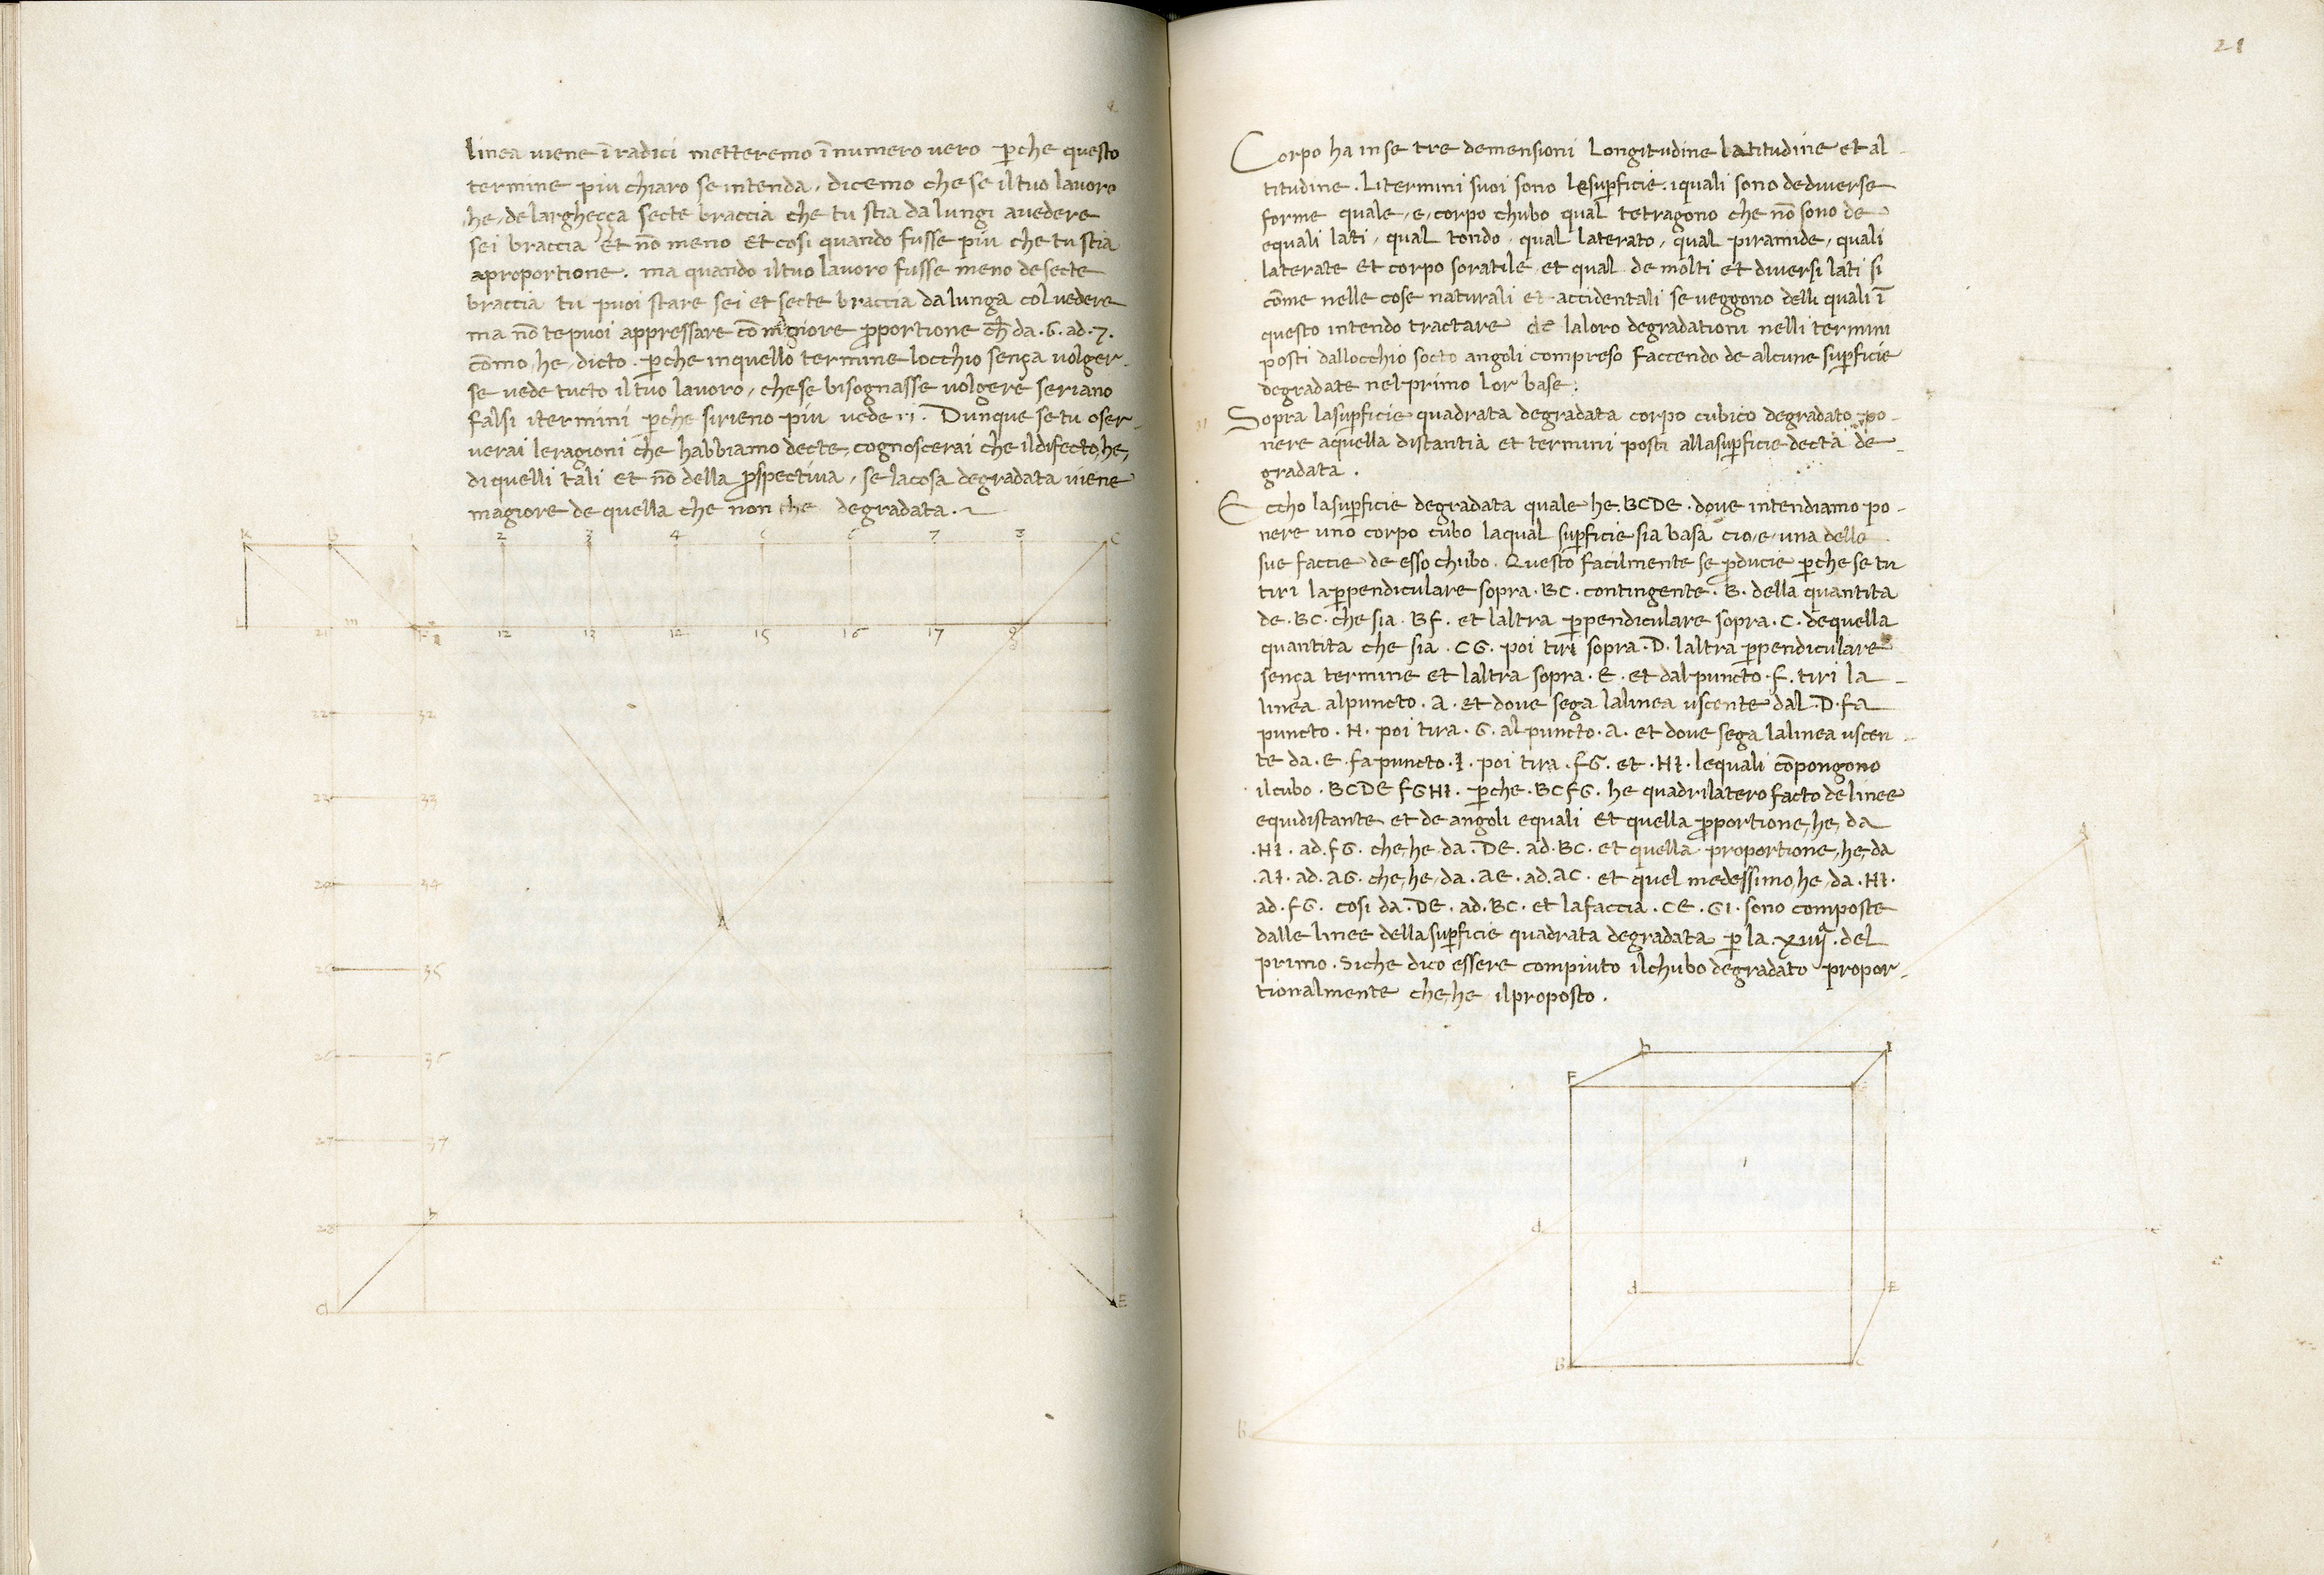 linea viene ī radici metteremo ī numero vero p̄che questo
termine piu chiaro se intenda, dicemo che se il tuo lavoro
he, de larghecça secte braccia che tu stia da lungi a vedere
sei braccia et nō meno et cosi quando fusse piu che tu stia
a proportione. ma quando il tuo lavoro fusse meno de secte
braccia tu puoi stare sei et secte braccia da lunga col vedere
ma nō te puoi appressare cō magiore p̄portione ch̄ da .6. ad .7.
cōmo, he, dicto. p̄che in quello termine locchio sença volger-
se vede tucto il tuo lavoro, che se bisognasse volgere seriano
falsi i termini p̄che sirieno piu vederi. Dunque se tu oser-
verai le ragioni che habbiamo decte, cognoscerai che il difecto, he,
di quelli tali et nō della p̄spectiva, se la cosa degradata viene
magiore de quella che non che degradata.
K B 2 3 4 6 7 C
21 12 13 14 15 16 17
22 32
23 33
24 34
A
35
26 36
27 37
28 h
E
21
Corpo ha in se tre demensioni Longitudine latitudine et al-
titudine. Li termini suoi sono le sup̄ficie. i quali sono de diverse
forme quale, e, corpo chubo qual tetragono che nō sono de
equali lati, qual tondo, qual laterato, qual piramide, quali
laterate et corpo soratile, et qual de molti et diversi lati si
cōme nelle cose naturali et accidentali se veggono delli quali ī
questo intendo tractare de la loro degradationi nelli termini
posti dallocchio socto angoli compreso faccendo de alcune sup̄ficie
degradate nel primo lor base:
Sopra la sup̄ficie quadrata degradata corpo cubico degradato po-
nere a quella distantia et termini posti alla sup̄ficie decta de-
gradata.
Eccho la sup̄ficie degradata quale he. BCDE. dove intendiamo po-
nere uno corpo cubo la qual sup̄ficie sia basa cio, e, una delle
sue faccie de esso chubo. Questo facilmente se p̄ducie p̄che se tu
tiri la p̄pendiculare sopra. BC. contingente. B. della quantita
de. BC. che sia. BF. et laltra p̄pendiculare sopra. C. de quella
quantita che sia. CG. poi tiri sopra. D. laltra p̄pendiculare
sença termine et laltra sopra. E. et dal puncto. F. tiri la
linea al puncto. A. et dove sega la linea uscente dal. D. fa
puncto. H. poi tira. G. al puncto. A. et dove sega la linea uscen-
te da. E. fa puncto. I. poi tira. FG. et. HI. le quali cōpongono
il cubo. BCDEFGHI. p̄che. BCFG. he quadrilatero facto de linee
equidistante et de angoli equali et quella p̄portione, he, da
.HI. ad. FG. che, he da. DE. ad. BC. et quella proportione, he, da
.AI. ad. AG. che, he, da. AE. ad. AC. et quel medessimo, he, da. HI.
ad. FG. cosi da. DE. ad. BC. et la faccia. CE. GI. sono composte
dalle linee della sup̄ficie quadrata degradata p̄ la. xiiijª. del
primo. Siche dico essere compiuto il chubo degradato propor-
tionalmente che, he il proposto.
A
h I
F
d
d E
B C
B